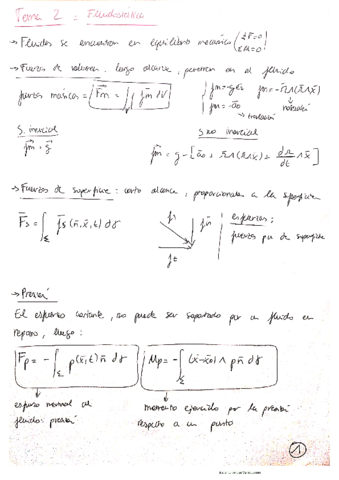 Tema 2 = Fluidostática
→ Fluidos se encuentran en equilibrio mecánico (ΣF̄=0 ΣM̄=0)
→ Fuerzas de volumen: largo alcance, penetran en el fluido
fuerzas másicas = F̄m = ∫ f̄m dV
fm = -ḡ fm = -Ω̄∧(Ω̄∧x̄)
fm = -ā₀ rotación
→ traslación
S. inercial S no inercial
f̄m = ḡ f̄m = g - [ā₀ + Ω∧(Ω∧x̄) + dΩ/dt ∧ x̄]
→ Fuerzas de superficie: corto alcance, proporcionales a la superficie
F̄s = ∫Σ f̄s(n̄,x̄,t) dσ
fs fn̄ ft
esfuerzos:
fuerzas por ud superficie
→ Presión
El esfuerzo cortante, no puede ser soportado por un fluido en
reposo, luego:
F̄p = -∫Σ p(x̄,t) n̄ dσ Mp = -∫Σ (x̄-x̄₀) ∧ p n̄ dσ
esfuerzo normal al momento ejercido por la presión
fluido: presión respecto a un punto
1